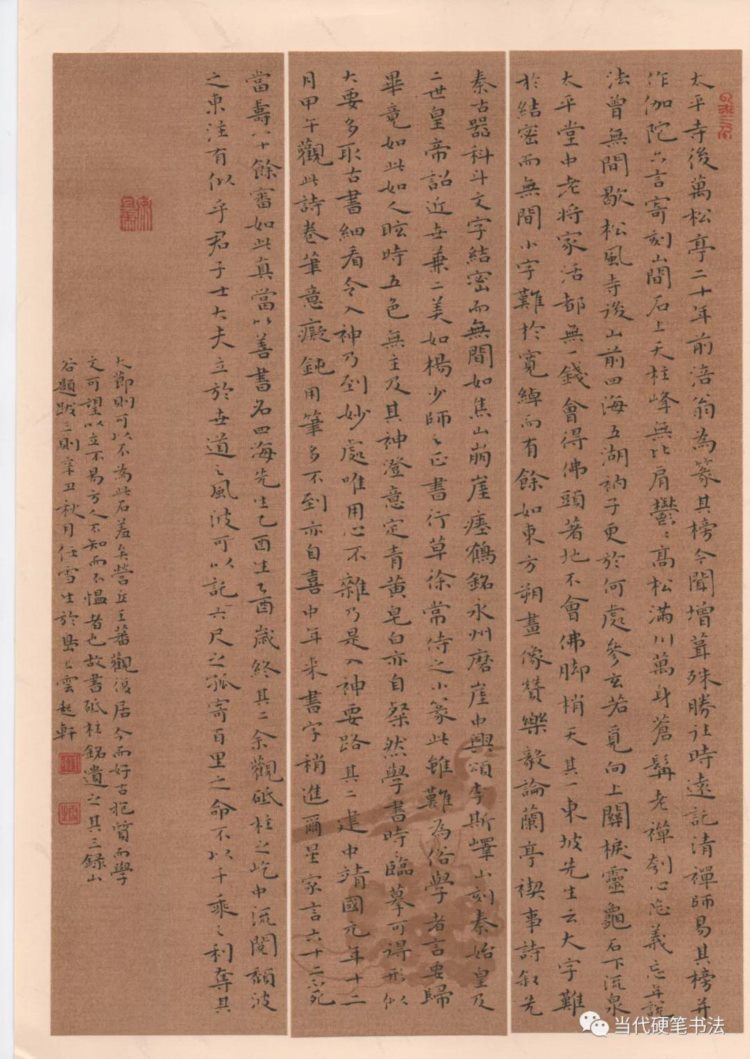 太平寺後萬松亭二十年前涪翁為篆其榜今聞增葺殊勝往時遠託清禪師易其榜并
作伽陀六言寄刻山間石上天柱峰無比肩鬱鬱高松滿川萬身蒼髯老禪刳心忘義忘年說
法曾無間歇松風寺後山前四海五湖衲子更於何處參玄若覓向上關捩靈龜石下流泉
太平堂中老將家活都無一錢會得佛頭著地不會佛脚梢天其一東坡先生云大字難
於結密而無間小字難於寬綽而有餘如東方朔畫像贊樂毅論蘭亭禊事詩叙先
秦古器科斗文字結密而無間如焦山崩崖瘞鶴銘永州磨崖中興頌李斯嶧山刻秦始皇及
二世皇帝詔近世兼二美如楊少師之正書行草徐常侍之小篆此雖難為俗學者言要歸
畢竟如此如人眩時五色無主及其神澄意定青黃皂白亦自粲然學書時臨摹可得形似
大要多取古書細看令入神乃到妙處唯用心不雜乃是入神要路其二建中靖國元年十二
月甲午觀此詩卷筆意癡鈍用筆多不到亦自喜中年來書字稍進爾星家言六十二不死
當壽八十餘審如此真當以善書名四海先生乙酉生乙酉歲終其二余觀砥柱之屹中流閱頹波
之東注有似乎君子士大夫立於世道之風波可以託六尺之孤寄百里之命不以千乘之利奪其
大節則可以不為此石羞矣營丘王蕃觀復居今而好古抱質而學
文可望以立不易方人不知而不慍者也故書砥柱銘遺之其三錄山
谷題跋三則辛丑秋月任雪生於 雲起軒
当代硬笔书法